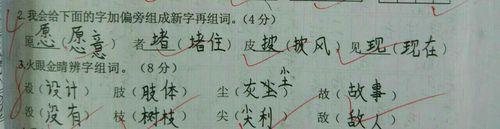 2.我会给下面的字加偏旁组成新字再组词。(4分)
原 愿(愿意) 者 堵(堵住) 皮 披(披风) 见 现(现在)
3.火眼金睛辨字组词。(8分)
设(设计) 肢(肢体) 尖(灰尘) 小土 故(故事)
没(没有) 枝(树枝) 尖(尖利) 敌(敌人)